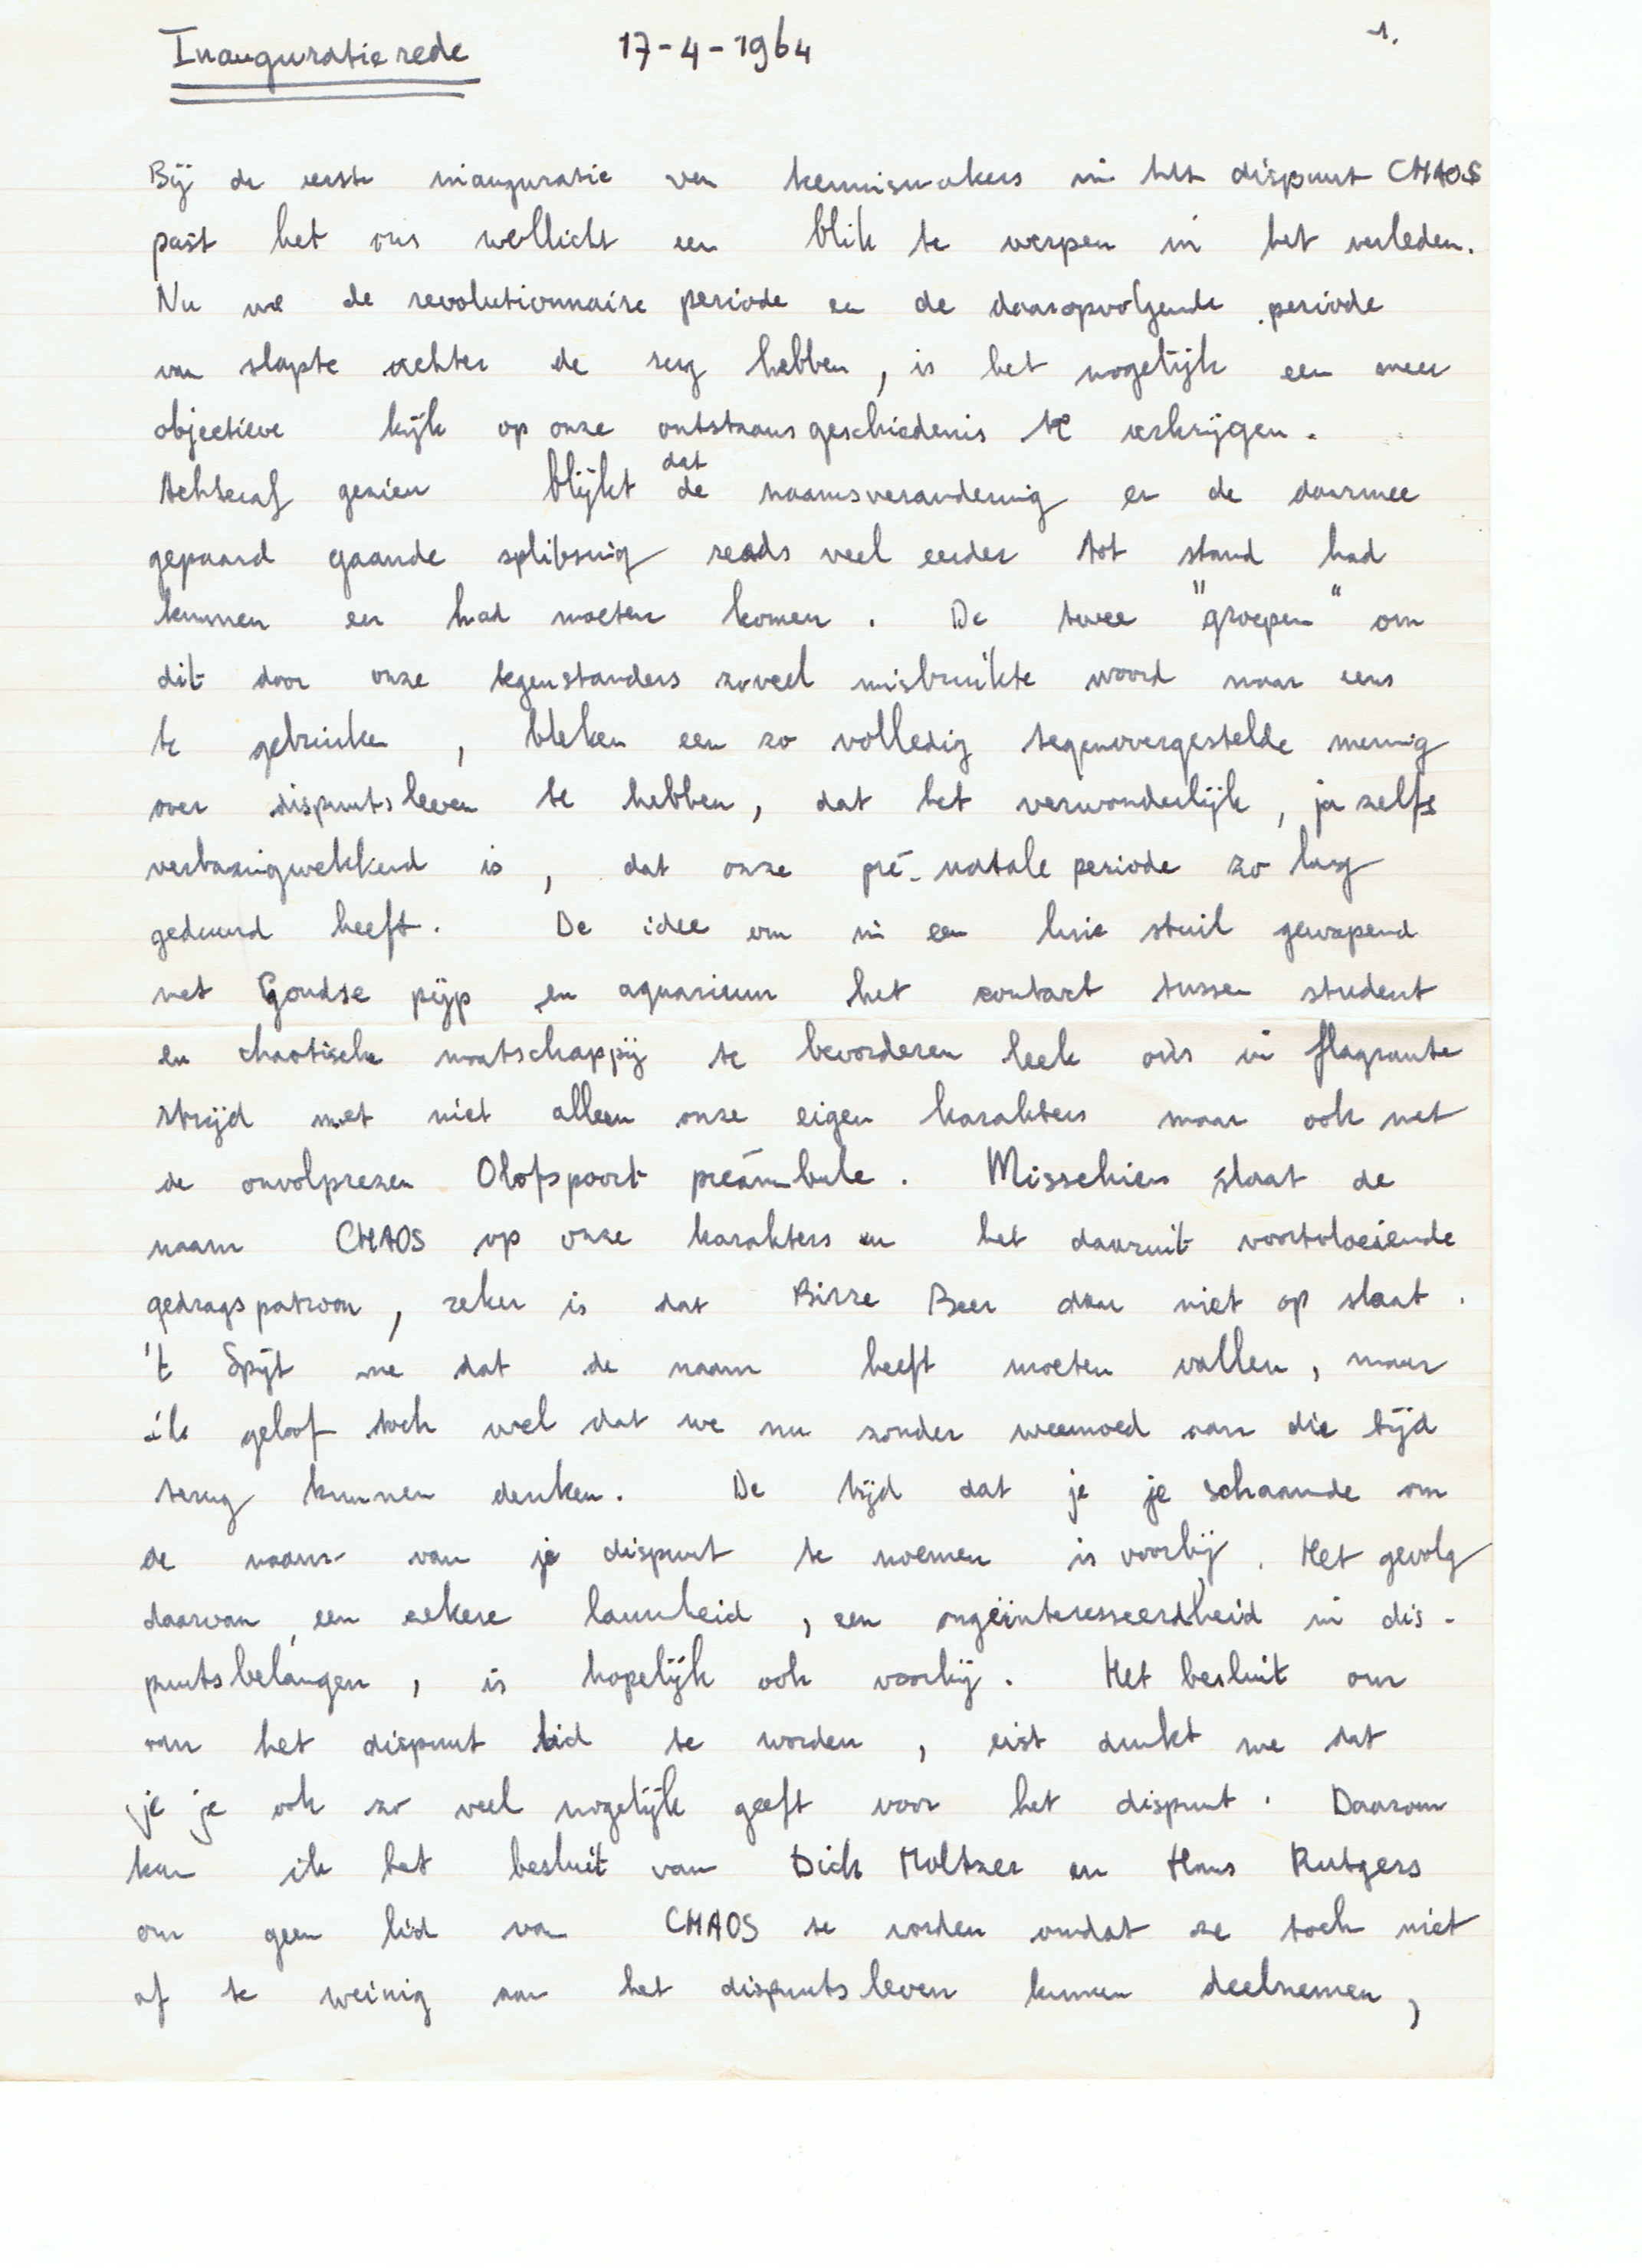 Inauguratie rede 17-4-1964 1.
Bij de eerste inauguratie van kennismakers in het dispuut CHAOS
past het ons wellicht een blik te werpen in het verleden.
Nu we de revolutionnaire periode en de daaropvolgende periode
van slapte achter de rug hebben, is het mogelijk een meer
objectieve kijk op onze ontstaansgeschiedenis te verkrijgen.
Achteraf gezien blijkt dat de naamsverandering en de daarmee
gepaard gaande splitsing reeds veel eerder tot stand had
kunnen en had moeten komen. De twee "groepen" om
dit door onze tegenstanders zoveel misbruikte woord maar eens
te gebruiken, bleken een zo volledig tegenovergestelde mening
over disputsleven te hebben, dat het verwonderlijk, ja zelfs
verbazingwekkend is, dat onze pré-natale periode zo lang
geduurd heeft. De idee om in een luie stoel gewapend
met Goudse pijp en aquarium het contact tussen student
en chaotische maatschappij te bevorderen leek ons in flagrante
strijd met niet alleen onze eigen karakters maar ook met
de onvolprezen Olofspoort preámbule. Misschien slaat de
naam CHAOS op onze karakters en het daaruit voortvloeiende
gedragspatroon, zeker is dat Birre Beer daar niet op slaat.
't Spijt me dat de naam heeft moeten vallen, maar
ik geloof toch wel dat we nu zonder weemoed aan die tijd
terug kunnen denken. De tijd dat je je schaamde om
de naam van je dispuut te noemen is voorbij. Het gevolg
daarvan, een zekere lauwheid, een ongeïnteresseerdheid in dis-
puutsbelangen, is hopelijk ook voorbij. Het besluit om
van het dispuut lid te worden, eist dunkt me dat
je je ook zo veel mogelijk geeft voor het dispuut. Daarom
kan ik het besluit van Dick Moltzer en Hans Rutgers
om geen lid van CHAOS te worden omdat ze toch niet
of te weinig aan het dispuutsleven kunnen deelnemen,